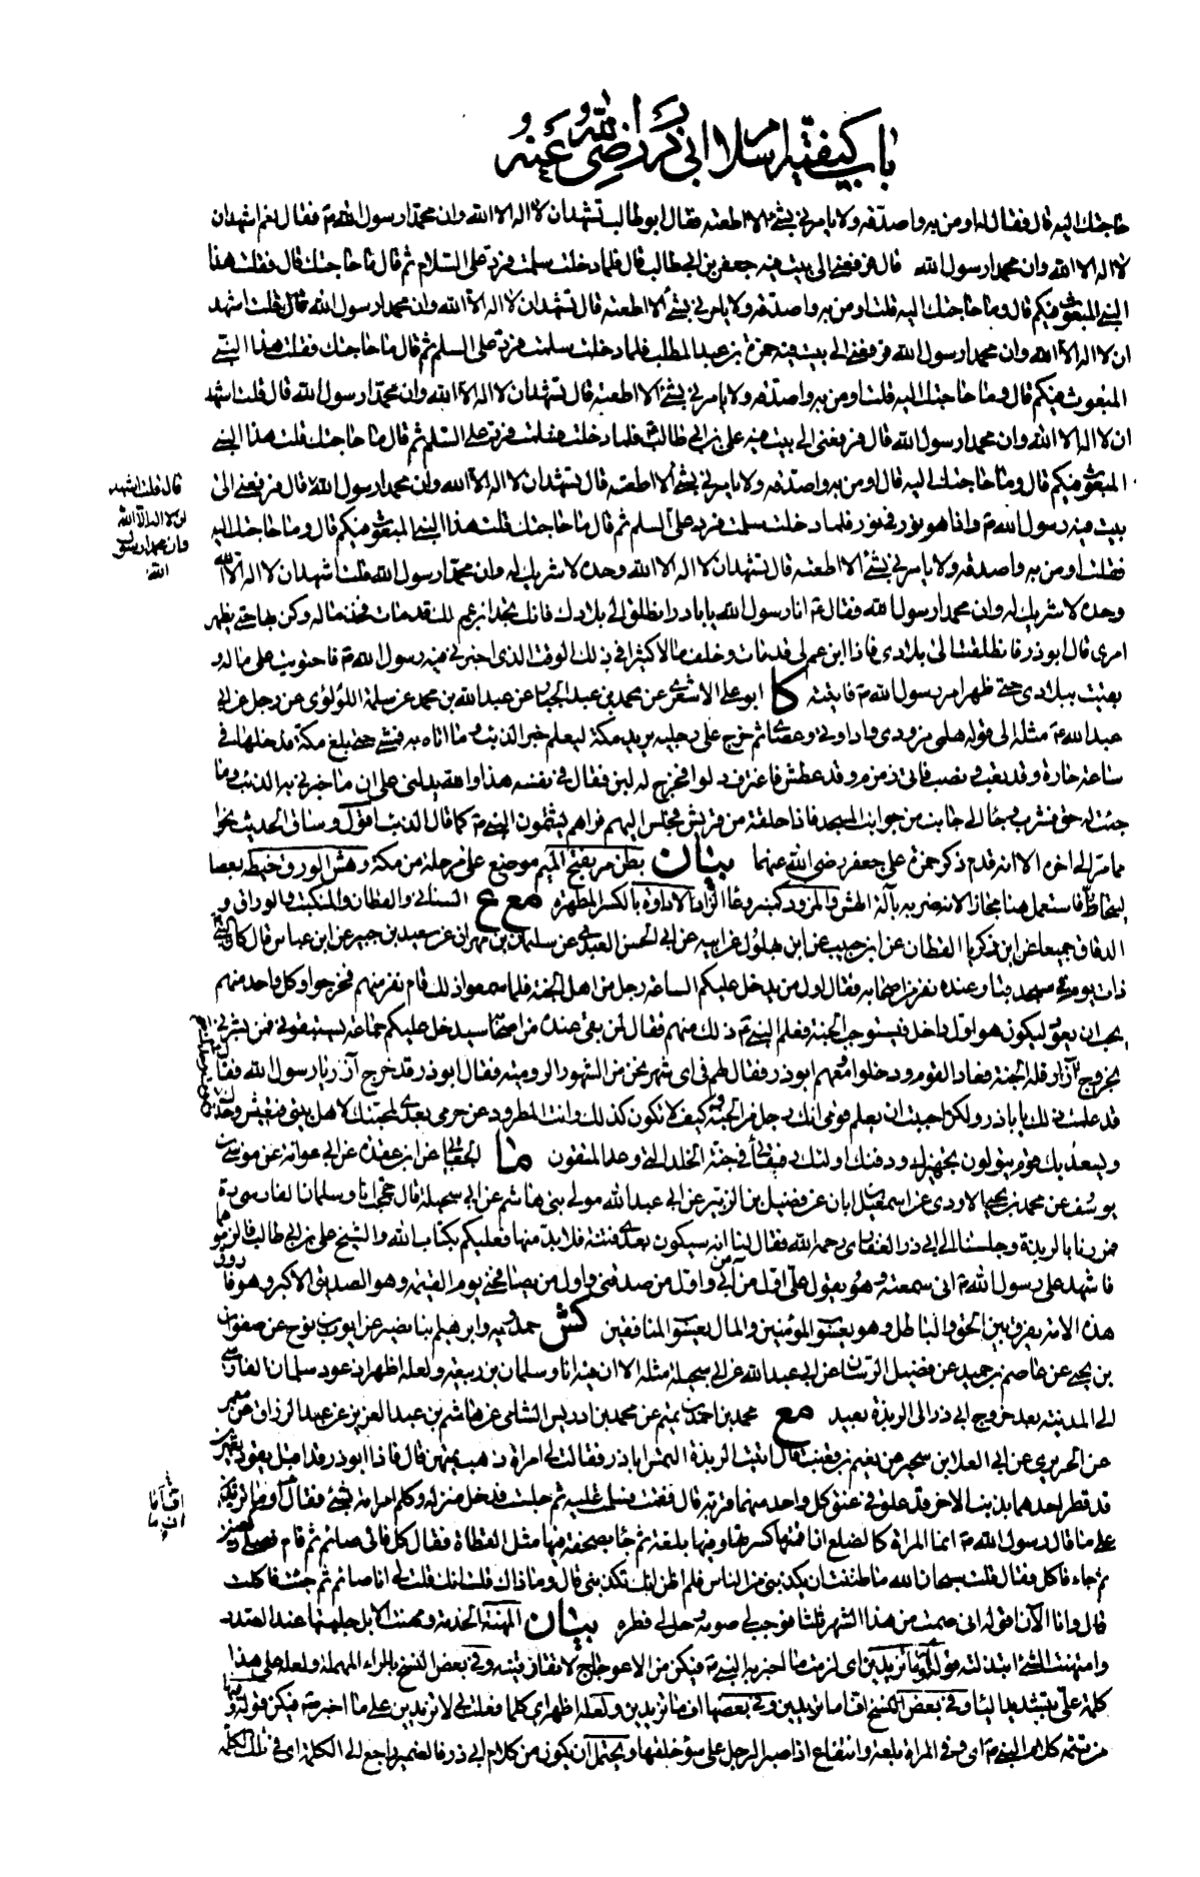 باب كيفية اسلام ابي ذر رضي الله عنه
حاجتك اليه قال فقلت له اومن به واصدقه ولا يامرني بشئ الا اطعته فقال ابو طالب تشهد ان لا اله الا الله وان محمدا رسول الله ص فقال نعم اشهد ان
لا اله الا الله وان محمدا رسول الله قال فرفعني الى بيت فيه جعفر بن ابي طالب قال فلما دخلت سلمت فرد على السلام ثم قال ما حاجتك قال فقلت هذا
النبي المبعوث فيكم قال وما حاجتك اليه قلت اومن به واصدقه ولا يامرني بشئ الا اطعته قال تشهد ان لا اله الا الله وان محمدا رسول الله قال قلت اشهد
ان لا اله الا الله وان محمدا رسول الله فرفعني الى بيت فيه حمزة بن عبد المطلب فلما دخلت سلمت فرد على السلم ثم قال ما حاجتك فقلت هذا النبي
المبعوث فيكم قال وما حاجتك اليه قلت اومن به واصدقه ولا يامرني بشئ الا اطعته قال تشهد ان لا اله الا الله وان محمدا رسول الله قال قلت اشهد
ان لا اله الا الله وان محمدا رسول الله قال فرفعني الى بيت فيه علي بن ابي طالب فلما دخلت سلمت فرد على السلم ثم قال ما حاجتك قلت هذا النبي
المبعوث فيكم قال وما حاجتك اليه قال اومن به واصدقه ولا يامرني بشئ الا اطعته قال تشهد ان لا اله الا الله وان محمدا رسول الله قال فرفعني الى
قال قلت اشهد
ان لا اله الا الله
وان محمدا رسول
الله
بيت فيه رسول الله ص واذا هو نور في نور فلما دخلت سلمت فرد على السلم ثم قال ما حاجتك قلت هذا النبي المبعوث فيكم قال وما حاجتك اليه
فقلت اومن به واصدقه ولا يامرني بشئ الا اطعته قال تشهد ان لا اله الا الله وحده لا شريك له وان محمدا رسول الله قلت اشهد ان لا اله الا الله
وحده لا شريك له وان محمدا رسول الله فقال ص انا رسول الله يا باذر انطلق الى بلادك فانك تجد ابن عم لك قد مات فخذ ماله وكن بها حتى يظهر
امري قال ابو ذر فانطلقت الى بلادي فاذا ابن عم لي قد مات وخلف مالا كثيرا في ذلك الوقت الذي اخبرني فيه رسول الله ص فاحتويت على ماله و
بقيت ببلادي حتى ظهر امر رسول الله ص فاتيته كا ابو علي الاشعري عن محمد بن عبد الجبار عن عبد الله بن محمد عن سلمة اللؤلؤي عن رجل عن ابي
عبد الله ع مثله الى قوله هلمي مزودي واداوتي وعصاي ثم خرج على رجليه يريد مكة ليعلم خبر الذئب وما اتاه به فمشى حتى بلغ مكة فدخلها في
ساعة حارة وقد تعب ونصب فاتى زمزم وقد عطش فاغترف دلوا فخرج له لبن فقال في نفسه هذا والله يدلني على ان ما خبرني به الذئب وما
جئت له حق فشرب وجاء الى جانب من جوانب المسجد فاذا حلقة من قريش فجلس اليهم فراهم يشتمون النبي ص كما قال الذئب اقول وساق الحديث نحوا
مما مر الى اخره الا انه قدم ذكر حمزة على جعفر رضي الله عنهما بيان بطن مر بفتح الميم موضع على مرحلة من مكة وهش الورق خبطه بعصا
ليتحات فاستعمل هنا مجازا لانه ضربه بآلة الهش والمزود كمنبر وعاء الزاد والاداوة بالكسر المطهرة مع ع السناني والقطان والمكتب والوراق و
الدقاق جميعا عن ابن زكريا القطان عن ابن حبيب عن ابن بهلول عن ابيه عن ابي الحسن العبدي عن سليمان بن مهران عن سعيد بن جبير عن ابن عباس قال كان النبي
ذات يوم في مسجد قبا وعنده نفر من اصحابه فقال اول من يدخل عليكم الساعة رجل من اهل الجنة فلما سمعوا ذلك قام نفر منهم فخرجوا وكل واحد منهم
يحب ان يعود ليكون هو اول داخل فيستوجب الجنة فعلم النبي ص ذلك منهم فقال لمن بقي عنده من اصحابه سيدخل عليكم جماعة يستبقوني فمن بشرني
بخروج آذار فله الجنة فعاد القوم ودخلوا ومعهم ابو ذر فقال لهم في اي شهر نحن من الشهور الرومية فقال ابو ذر قد خرج آذار يا رسول الله فقال
قد علمت ذلك يا باذر ولكن احببت ان يعلم قومي انك رجل من الجنة وكيف لا تكون كذلك وانت المطرود عن حرمي بعدي لمحبتك لاهل بيتي فتعيش وحدك
ويسعد بك قوم يتولون تجهيزك ودفنك اولئك رفقائي في جنة الخلد التي وعد المتقون ما الجعابي عن ابن عقدة عن ابي عوانة عن موسى بن
يوسف عن محمد بن يحيى الاودي عن اسمعيل بن ابان عن فضيل بن الزبير عن ابي عبد الله مولى بني هاشم عن ابي سخيلة قال حججت انا وسلمان الفارسي ره
فمررنا بالربذة وجلسنا الى ابي ذر الغفاري رحمه الله فقال لنا انه سيكون بعدي فتنة فلا بد منها فعليكم بكتاب الله والشيخ علي بن ابي طالب فالزموهما
فاشهد على رسول الله ص اني سمعته وهو يقول علي اول من آمن بي واول من صدقني واول من يصافحني يوم القيمة وهو الصديق الاكبر وهو فاروق
هذه الامة يفرق بين الحق والباطل وهو يعسوب المؤمنين والمال يعسوب المنافقين كش حمدويه وابرهيم ابنا نصير عن ايوب بن نوح عن صفوان
بن يحيى عن عاصم بن حميد عن فضيل الرسان عن ابي عبد الله عن ابي سخيلة مثله الا ان فيه انا وسلمان بن ربيعة ولعله اظهر اذ عود سلمان الفارسي
الى المدينة بعد خروج ابي ذر الى الربذة بعيد مع محمد بن احمد بن تميم عن محمد بن ادريس الشامي عن هاشم بن عبد العزيز عن عبد الرزاق عن معمر
عن الجريري عن ابي العلا بن سخير عن نعيم بن قعنب قال اتيت الربذة التمس اباذر فقالت لي امراة ذهب يمتهن قال فاذا ابو ذر قد اقبل يقود بعيرين
قد قطر احدهما بذنب الاخر وقد علق في عنق كل واحد منهما قربة قال فقمت فسلمت عليه ثم جلست فدخل منزله وكلم امراته بشئ فقال
على ما قال رسول الله ص انما المراة كالضلع ان اقمتها كسرتها وفيها بلغة ثم جاء بصحفة فيها مثل القطاة فقال كل فاني صائم ثم قام فصلى ركعتين
ثم جاء فاكل فقال قلت سبحان الله ما ظننت ان يكذبني من الناس فلم اظن انك تكذبني قال وما ذاك قلت انك قلت لي انا صائم ثم جئت فاكلت
قال وانا الآن اقوله اني صمت من هذا الشهر ثلثا فوجب لي صومه وحل لي فطره بيان المهنة الخدمة ومهنت الابل حلبتها عند الصدر
وامتهنت الشئ ابتذلته قوله ما تزيدين اي لزمت ما اخبر به النبي ص فيكن من الاعوجاج لا تفارقينه وفي بعض النسخ بالراء المهملة ولعله على هذا
كلمة على بتشديد الياء وفي بعض النسخ اف اما تزيدين وفي بعضها اف ما تزيدين ولعله اظهر اي كلما فعلت بي لا تزيدين على ما اخبر ص فيكن قوله وفيها
من تتمة كلام النبي ص اي وفي المراة بلغة وانتفاع اذا صبر الرجل على سوء خلقها ويحتمل ان يكون من كلام ابي ذر فالضمير راجع الى الكلمة اي في تلك الكلمة